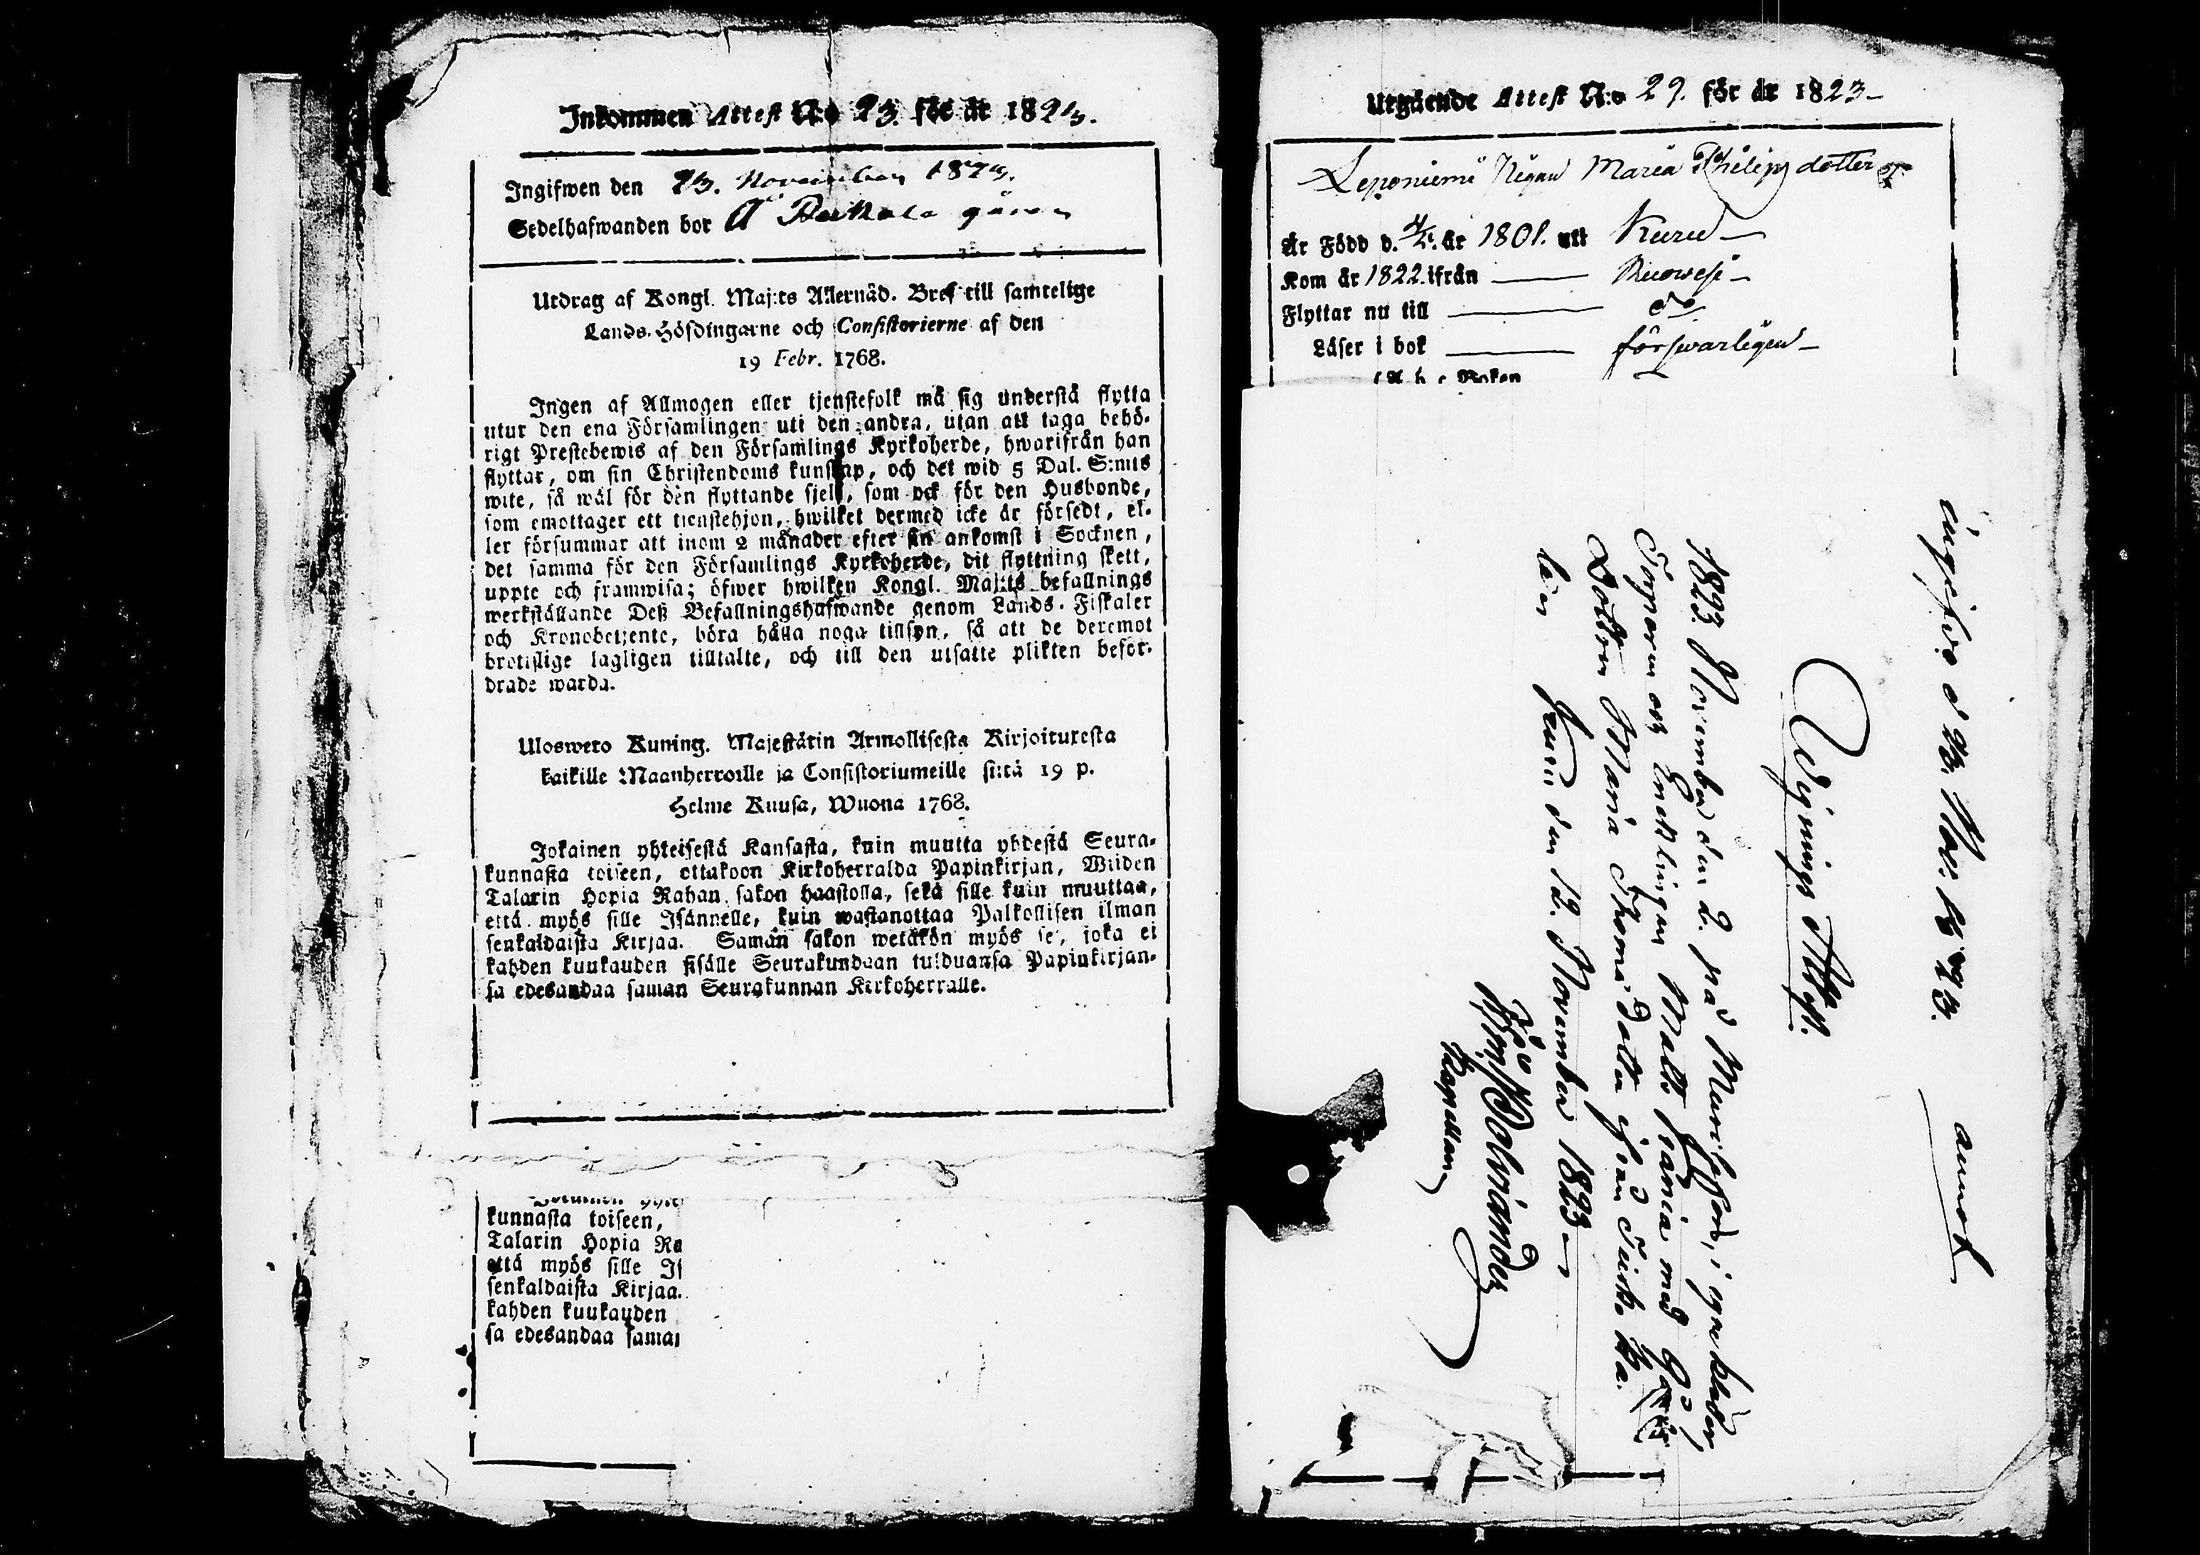 Inkommen Attest N:o 23. för år 1823.
Ingifwen den 23. November 1823.
Sedelhafwanden bor å
Utdrag af Kongl. Maj:ts Allernåd. Bref till samtelige
Lands-Höfdingarne och Consistorierne af den
19 Febr. 1768.
Ingen af Allmogen eller tjenstefolk må sig understå flytta
utur den ena Församlingen uti den andra, utan att taga behö-
rigt Prestebewis af den Församlings Kyrkoherde, hwarifrån han
flyttar, om sin Christendoms kunskap, och det wid 5 Dal. S:mts
wite, så wäl för den flyttande sjelf, som ock för den Husbonde,
som emottager ett tienstehjon, hwilket dermed icke är försedt, el-
ler försummar att inom 2 månader efter sin ankomst i Socknen,
det samma för den Församlings Kyrkoherde, dit flyttning skett,
uppte och framwisa; öfwer hwilken Kongl. Maj:ts befallnings
werkställande Deß Befallningshafwande genom Lands-Fiskaler
och Kronobetjente, böra hålla noga tillsyn, så att de deremot
brotslige lagligen tilltalte, och till den utsatte plikten befor-
drade warda.
Uloswero Kuning. Majestätin Armollisesta Kirjoituxesta
kaikille Maanherroille ja Consistoriumeille siitä 19 p.
Helme Kuusa, Wuona 1768.
Jokainen yhteisestä Kansasta, kuin muutta yhdestä Seura-
kunnasta toiseen, ottakoon Kirkoherralda Papinkirjan, Wiiden
Talarin Hopia Rahan sakon haastolla, sekä sille kuin muuttaa,
että myös sille Isännelle, kuin wastanottaa Palkollisen ilman
senkaldaista Kirjaa. Samän sakon wetäkön myös se, joka ei
kahden kuukauden sisälle Seurakundaan tulduansa Papinkirjan-
sa edesandaa saman Seurakunnan Kirkoherralle.
kunnasta toiseen,
Talarin Hopia Ra
että myös sille Is
senkaldaista Kirjaa.
kahden kuukauden
sa edesandaa saman
Utgående Attest N:o 29. för år 1823
Leponiemi Pigan Maria Philips dotter
Är Född d. år 1801. uti Kuru
Kom år 1822 ifrån Ruowesi
Flyttar nu till do
Läser i bok förswarligen
A b c Boken
ingifwo d 23. Nov. 1823.
Wignings Attest.
1823. November den 2. på
och Enklingen Matts med
Dottren Maria Thomæ dotter ifrån
län Kuru den 12. November 1823
Kapellan